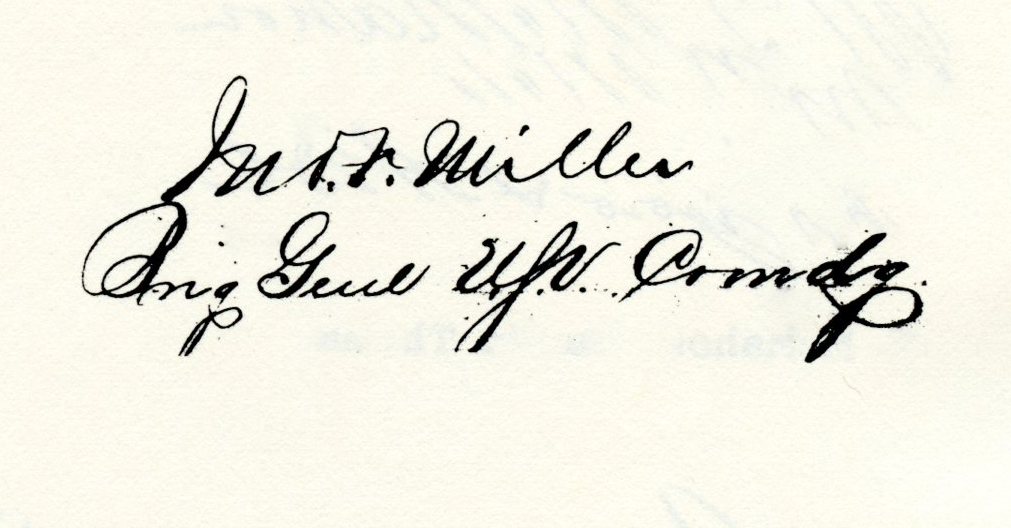 Jno. F. Miller
Brig Genl U.S.V. Comdg.